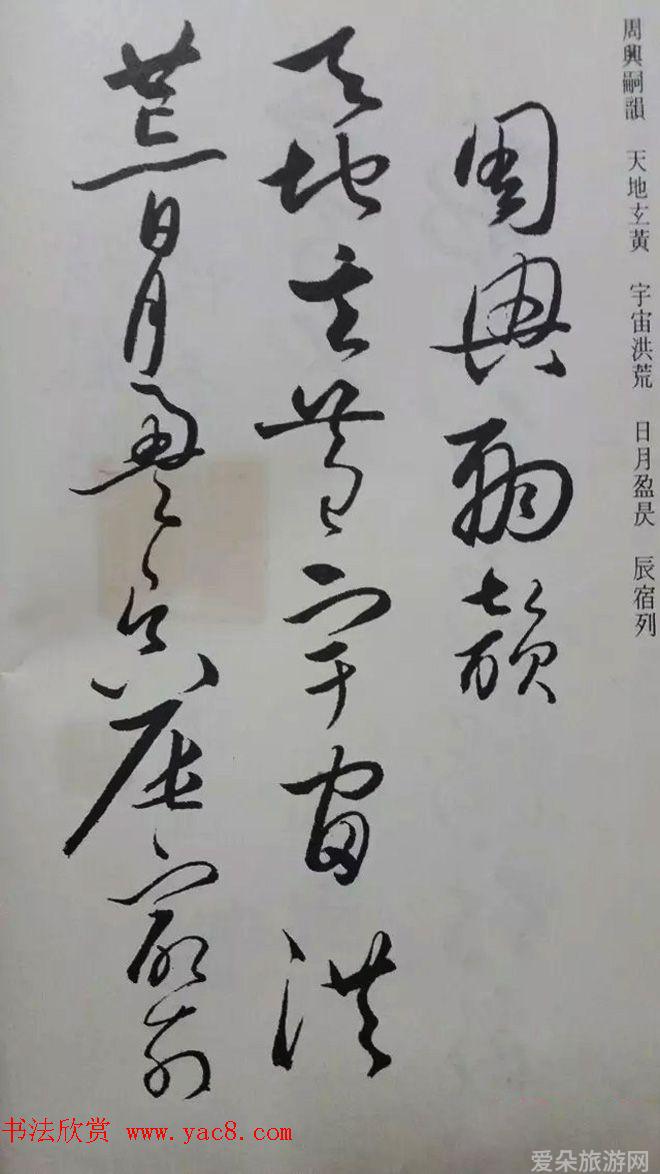 周興嗣韻 天地玄黃 宇宙洪荒 日月盈昃 辰宿列
周興嗣韻
天地玄黃宇宙洪
荒日月盈昃辰宿列
书法欣赏 www.yac8.com
爱朵旅游网